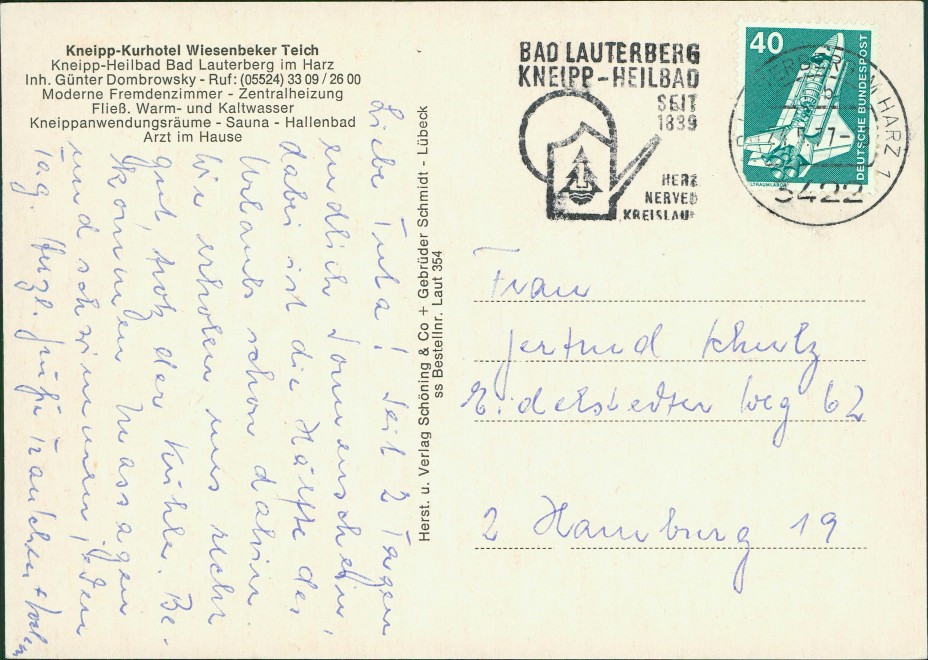 Kneipp-Kurhotel Wiesenbeker Teich
Kneipp-Heilbad Bad Lauterberg im Harz
Inh. Günter Dombrowsky - Ruf: (05524) 33 09 / 26 00
Moderne Fremdenzimmer - Zentralheizung
Fließ. Warm- und Kaltwasser
Kneippanwendungsräume - Sauna - Hallenbad
Arzt im Hause
Liebe Tuta! Seit 2 Tagen
endlich Sonnenschein,
dabei ist die Hälfte des
Urlaubs schon dahin
Wir erholen uns sehr
gut, trotz der Kühle. Be-
kommen Massagen
und schwimmen jeden
Tag. Herzl. Grüße
Herst. u. Verlag Schöning & Co + Gebrüder Schmidt - Lübeck
ss Bestellnr. Laut 354
BAD LAUTERBERG
KNEIPP-HEILBAD
SEIT
1839
HERZ
NERVEN
KREISLAUF
40
DEUTSCHE BUNDESPOST
IM HARZ 1
3422
Frau
Gertrud Schulz
Eiderstedter Weg 62
2 Hamburg 19